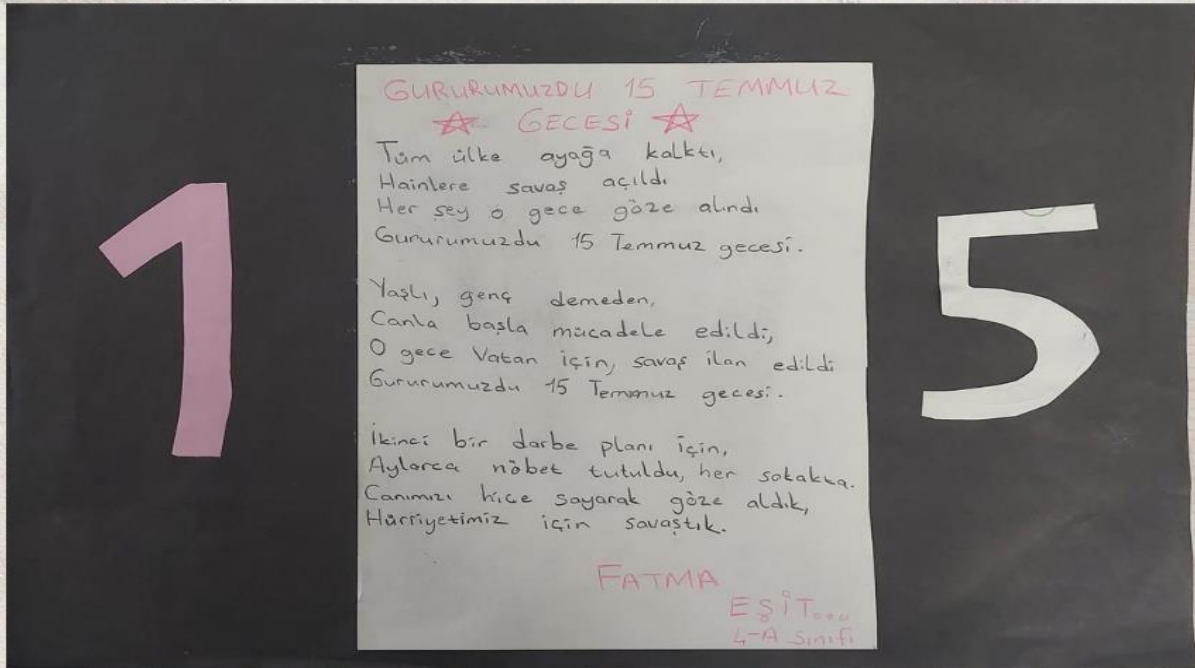 GURURUMUZDU 15 TEMMUZ
GECESİ
Tüm ülke ayağa kalktı,
Hainlere savaş açıldı
Her şey o gece göze alındı
Gururumuzdu 15 Temmuz gecesi.
Yaşlı, genç demeden,
Canla başla mücadele edildi,
O gece Vatan için, savaş ilan edildi
Gururumuzdu 15 Temmuz gecesi.
İkinci bir darbe planı için,
Aylarca nöbet tutuldu, her sokakta.
Canımızı hiçe sayarak göze aldık,
Hürriyetimiz için savaştık.
FATMA
EŞİT...
4-A Sınıfı
1
5